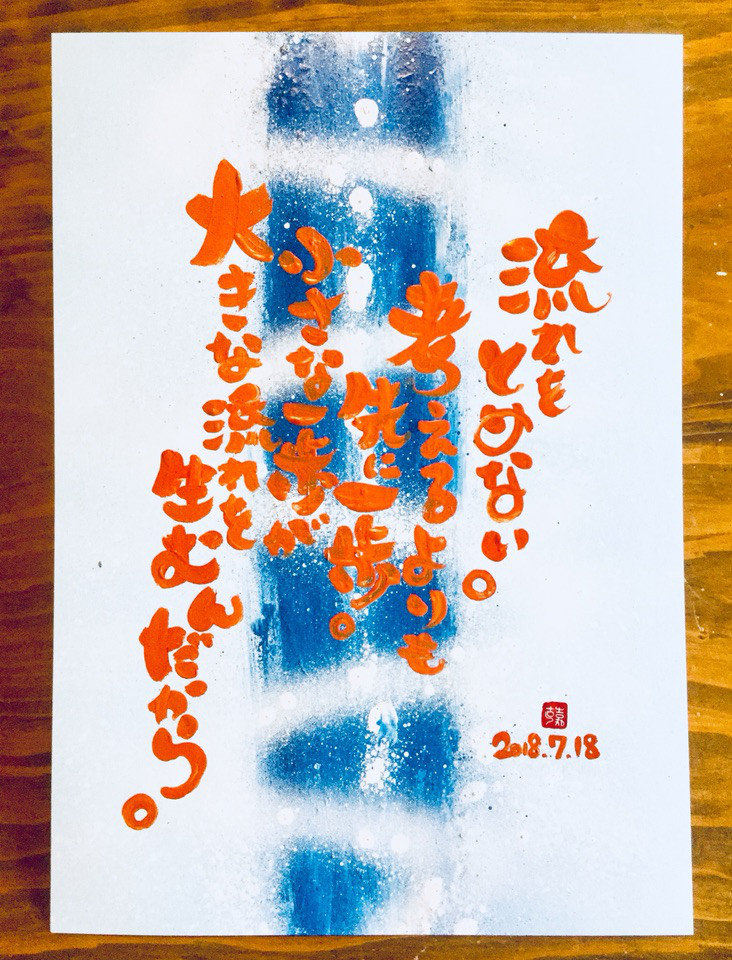 流れを
とめない。
考えるよりも
先に一歩。
小さな一歩が
大きな流れを
生むんだから。
2018.7.18